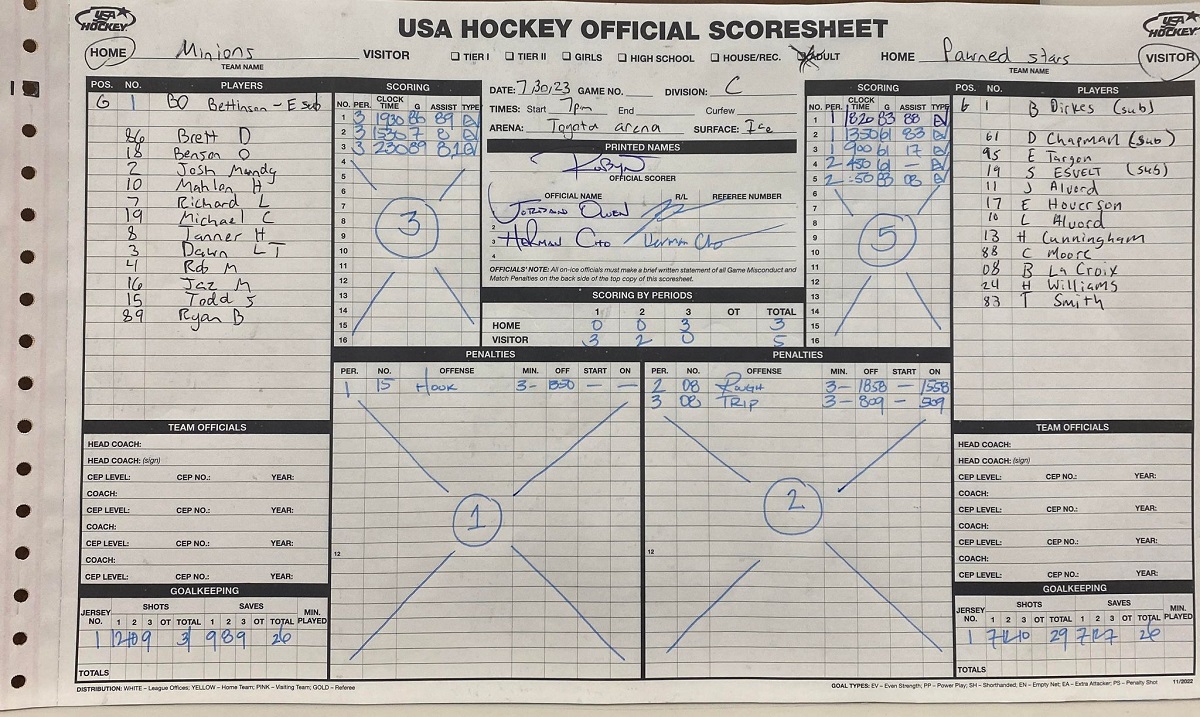 USA HOCKEY
USA HOCKEY OFFICIAL SCORESHEET
USA HOCKEY
HOME Minions VISITOR
TEAM NAME
☐ TIER I ☐ TIER II ☐ GIRLS ☐ HIGH SCHOOL ☐ HOUSE/REC. ☒ ADULT
HOME Pawned stars VISITOR
TEAM NAME
POS. NO. PLAYERS
G 1 BO Bettinson - E sub
86 Brett D
18 Benson O
2 Josh Mandy
10 Mahlon H
7 Richard L
19 Michael C
8 Tanner H
3 Dawn LT
4 Rob M
16 Jaz M
15 Todd S
89 Ryan B
SCORING
NO. PER. CLOCK TIME G ASSIST TYPE
1 3 1930 86 89 EV
2 3 1530 7 8 EV
3 3 230 89 8,10 EV
4
5
6
7
8
9
10
11
12
13
14
15
16
3
DATE: 7,30,23 GAME NO. DIVISION: C
TIMES: Start 7pm End Curfew
ARENA: Toyota arena SURFACE: Ice
PRINTED NAMES
Robyn
OFFICIAL SCORER
OFFICIAL NAME R/L REFEREE NUMBER
Jordano Owen
2
3 Herman Cho Herman Cho
4
OFFICIALS' NOTE: All on-ice officials must make a brief written statement of all Game Misconduct and
Match Penalties on the back side of the top copy of this scoresheet.
SCORING BY PERIODS
1 2 3 OT TOTAL
HOME 0 0 3 3
VISITOR 3 2 0 5
SCORING
NO. PER. CLOCK TIME G ASSIST TYPE
1 1 1820 83 88 EV
2 1 1350 61 83 EV
3 1 900 61 17 EV
4 2 450 61 - EV
5 2 :50 83 08 EV
6
7
8
9
10
11
12
13
14
15
16
5
POS. NO. PLAYERS
G 1 B Dirkes (sub)
61 D Chapman (sub)
95 E Targon
19 S ESVELT (sub)
11 J Alvord
17 E Hoverson
10 L Alvord
13 H Cunningham
88 C Moore
08 B La Croix
24 H Williams
83 T Smith
PENALTIES
PER. NO. OFFENSE MIN. OFF START ON
1 15 Hook 3- 1350 — —
12
1
PENALTIES
PER. NO. OFFENSE MIN. OFF START ON
2 08 ROUGH 3- 1858 - 1558
3 08 TRIP 3- 809 - 509
12
2
TEAM OFFICIALS
HEAD COACH:
HEAD COACH: (sign)
CEP LEVEL: CEP NO.: YEAR:
COACH:
CEP LEVEL: CEP NO.: YEAR:
COACH:
CEP LEVEL: CEP NO.: YEAR:
COACH:
CEP LEVEL: CEP NO.: YEAR:
GOALKEEPING
JERSEY NO. SHOTS 1 2 3 OT TOTAL SAVES 1 2 3 OT TOTAL MIN. PLAYED
1 12 10 9 31 9 8 9 26
TOTALS
TEAM OFFICIALS
HEAD COACH:
HEAD COACH: (sign)
CEP LEVEL: CEP NO.: YEAR:
COACH:
CEP LEVEL: CEP NO.: YEAR:
COACH:
CEP LEVEL: CEP NO.: YEAR:
COACH:
CEP LEVEL: CEP NO.: YEAR:
GOALKEEPING
JERSEY NO. SHOTS 1 2 3 OT TOTAL SAVES 1 2 3 OT TOTAL MIN. PLAYED
1 7 12 10 29 7 12 7 26
TOTALS
DISTRIBUTION: WHITE – League Offices; YELLOW – Home Team; PINK – Visiting Team; GOLD – Referee
GOAL TYPES: EV – Even Strength; PP – Power Play; SH – Shorthanded; EN – Empty Net; EA – Extra Attacker; PS – Penalty Shot 11/2022